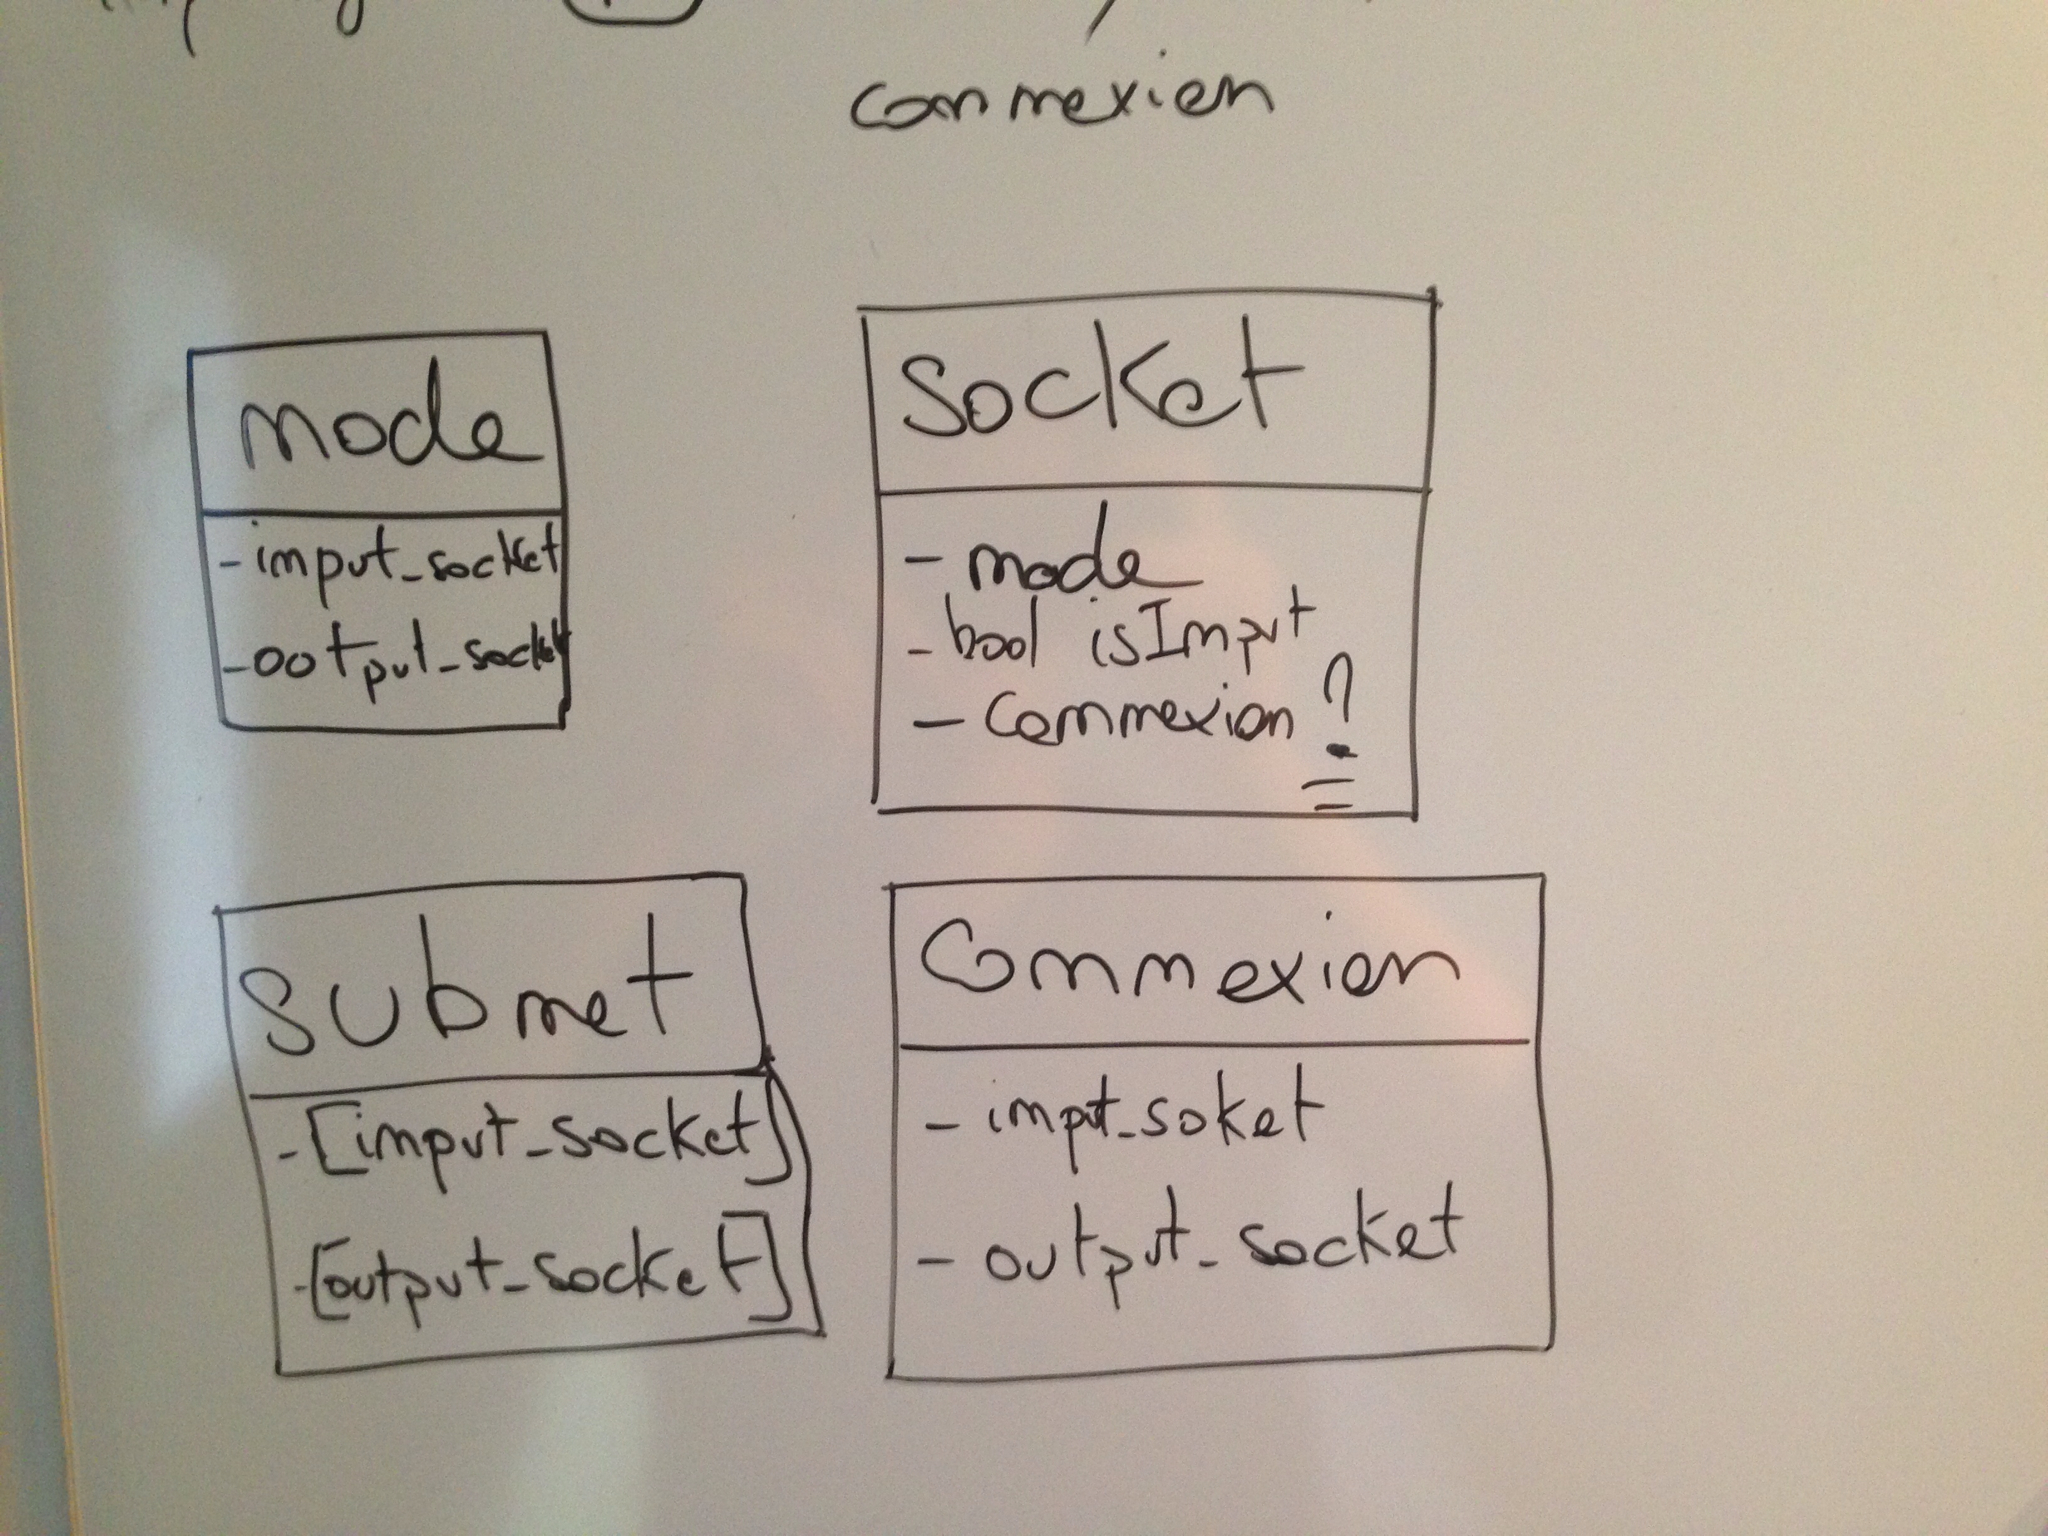 connexion
node
-input_socket
-output_socket
socket
- node
- bool isInput
- connexion ?
subnet
-[input_socket]
-[output_socket]
Connexion
- input_soket
- output_socket